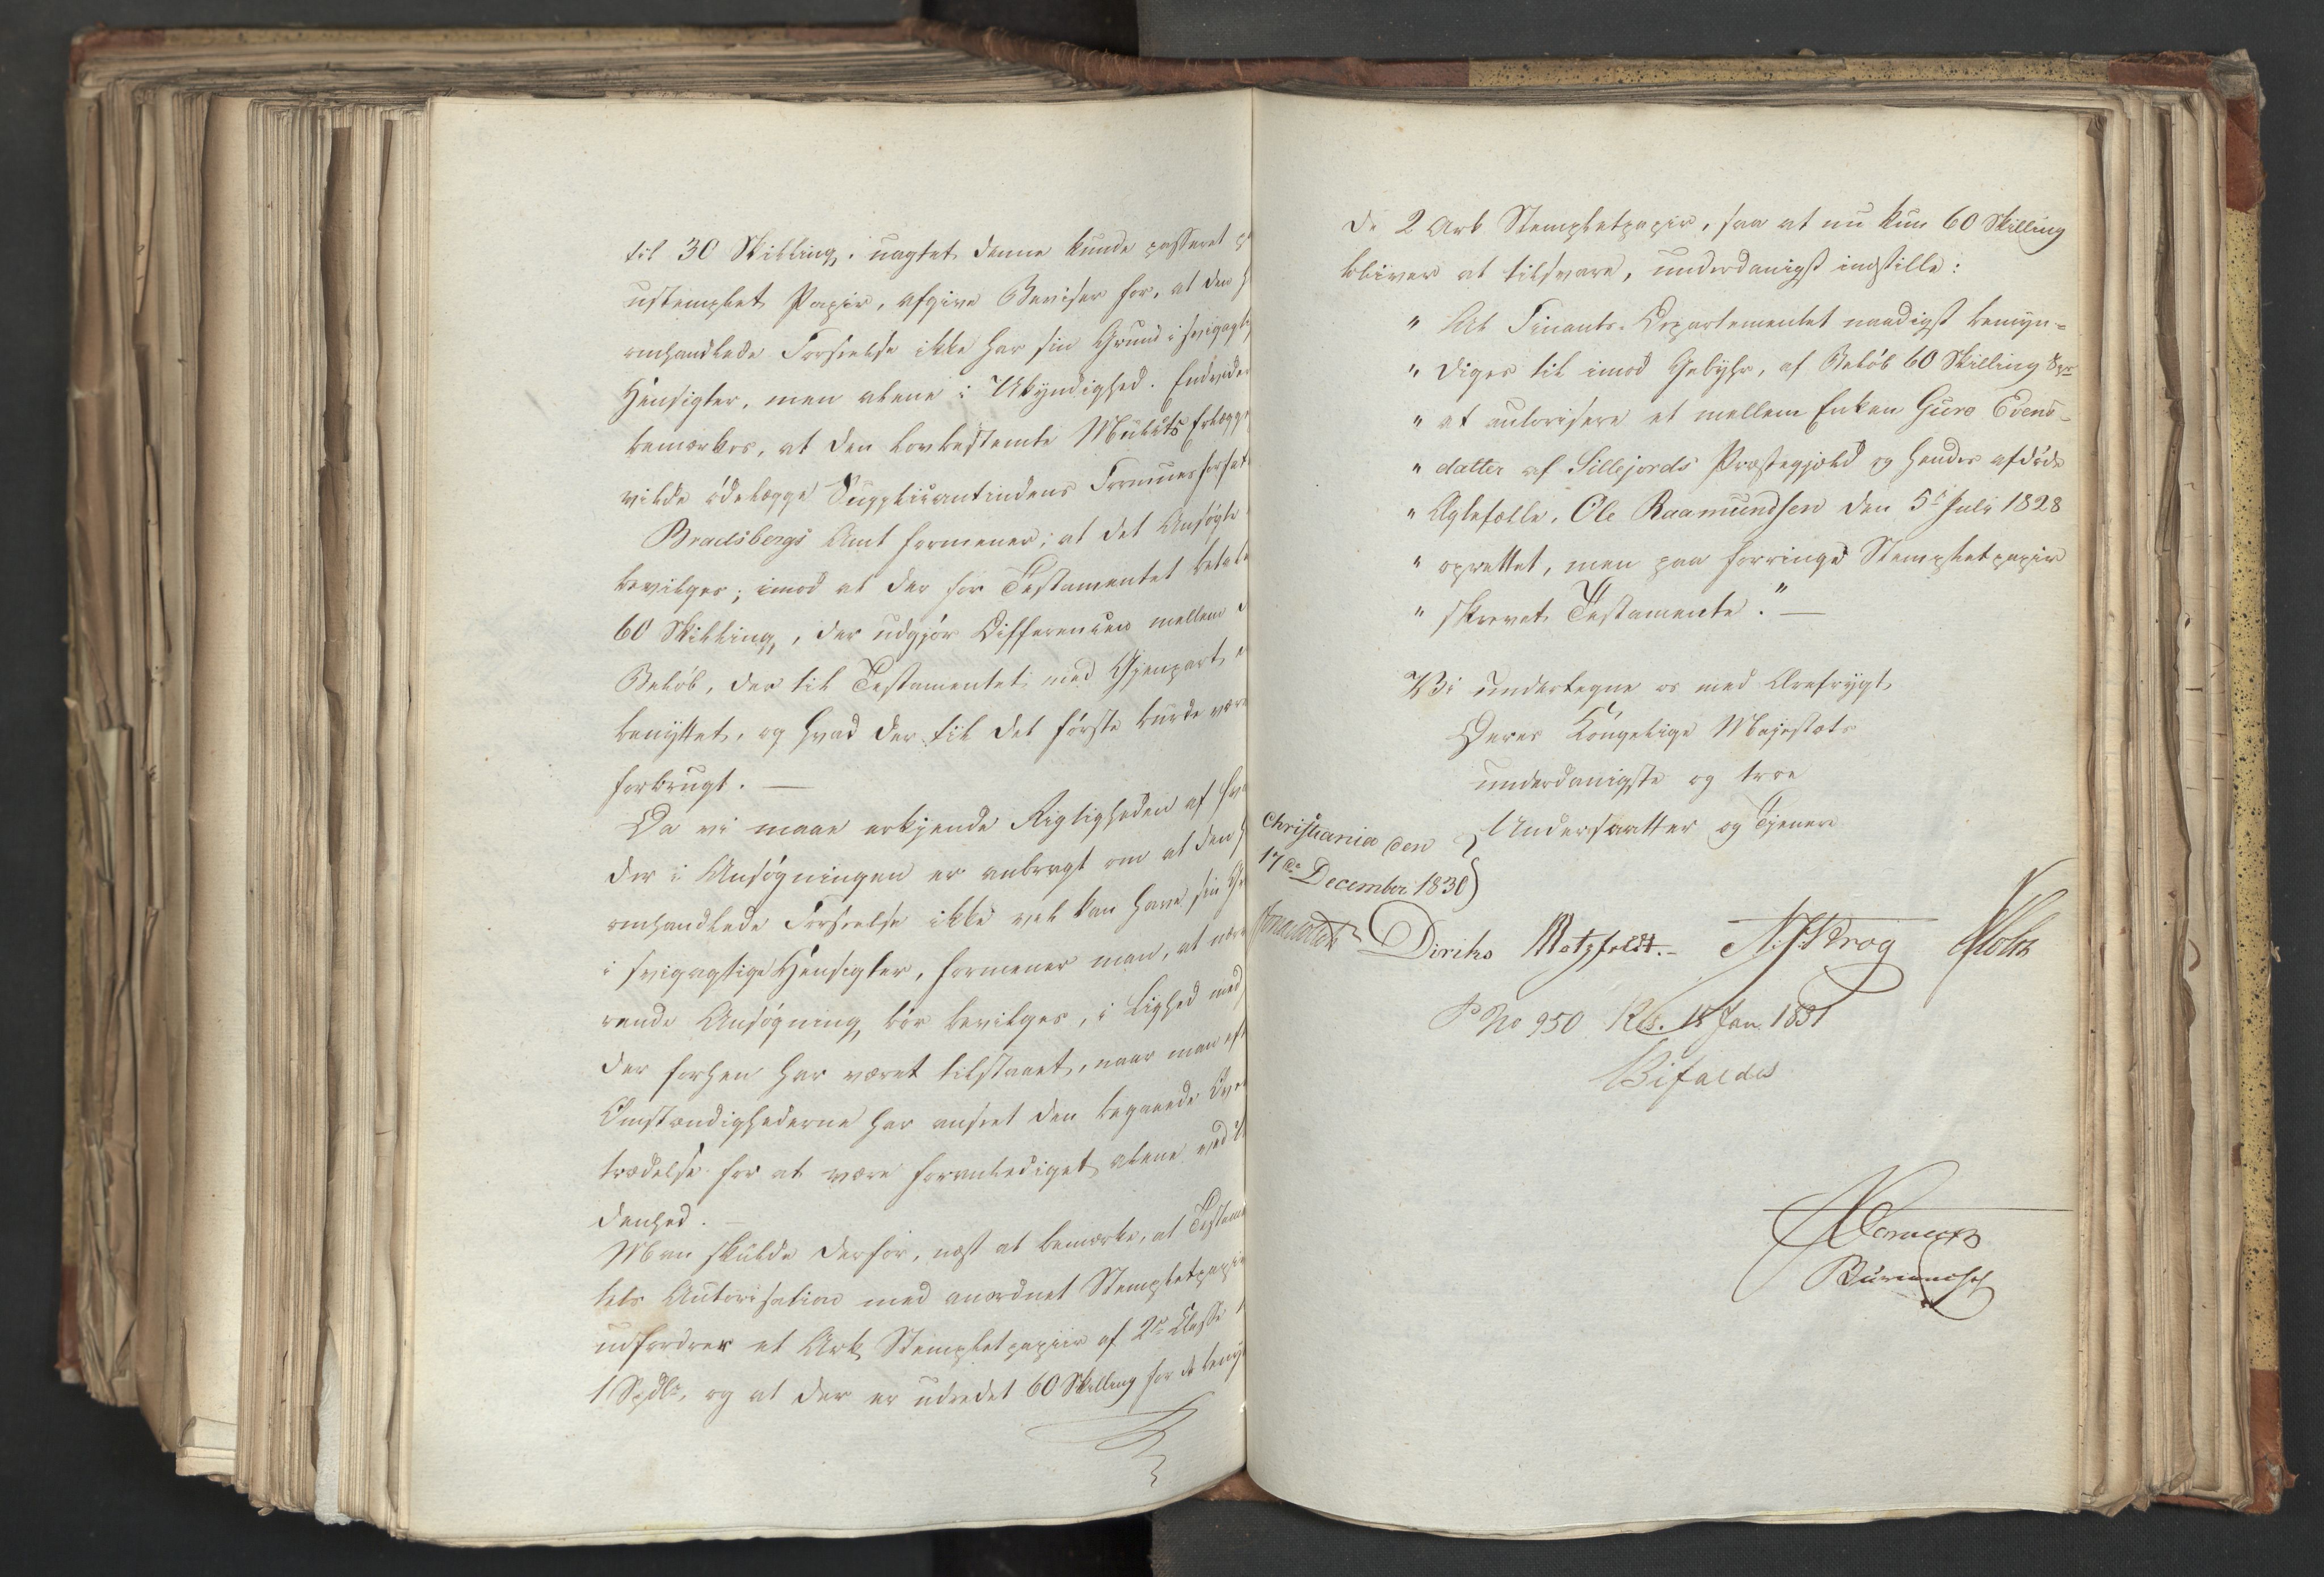 til 30 Skilling, uagtet denne kunde passeret
ustemplet Papir, afgive Beviser for, at den
omhandlede Forseelse ikke har sin Grund i svigagti
Hensigter, men alene i Ukyndighed. Endvider
bemærkes, at den lovbestemte Mulcts Erlægge
vilde ödelægge Supplicantindens Formuesforfat
Bradsbergs Amt formener, at det Ansögte
bevilges, imod at der for Testamentet betale
60 Skilling, der udgjör Differencen mellem
Belöb, der til Testamentet med Gjenpart
benyttet, og hvad der til det förste burde være
forbrugt. —
Da vi maae erkjende Rigtigheden af hva
der i Ansögningen er anbragt om at den
omhandlede Forseelse ikke vel kan have sin
i svigagtige Hensigter, formener man, at nærv
rende Ansögning bör bevilges, i Lighed med
der forhen har været tilstaaet, naar man eft
Omstændighederne har anseet den begaaede Over
trædelse for at være foranlediget alene ved
denhed. —
Man skulde derfor, næst at bemærke, at Testam
tets Autorisation med anordnet Stempletpapir
udfordrer et Ark Stempletpapiir af 2 Classe
1 Spdlr, og at der er udredet 60 Skilling for de beny
de 2 Ark Stempletpapir, saa at nu kun 60 Skilling
bliver at tilsvare, underdanigst indstille:
" At Finants-Departementet naadigst bemyn-
" diges til imod Gebyhr, af Belöb 60 Skilling
" at autorisere et mellem Enken Guro Evens-
" datter af Sillejords Præstegjæld og hendes afdöde
" Ægtefælle, Ole Raamundsen den 5 July 1828
" oprettet, men paa forringe Stempletpapir
" skrevet Testamente." —
Vi undertegne os med Ærefrygt,
Deres Kongelige Majestæts
underdanigste og troe
Undersaatter og Tjenere
Christiania den
17de December 1830
Diriks Motzfeldt. N. J. Krog Holst
P No 950 Res. 18 Jan. 1831
Bifaldes